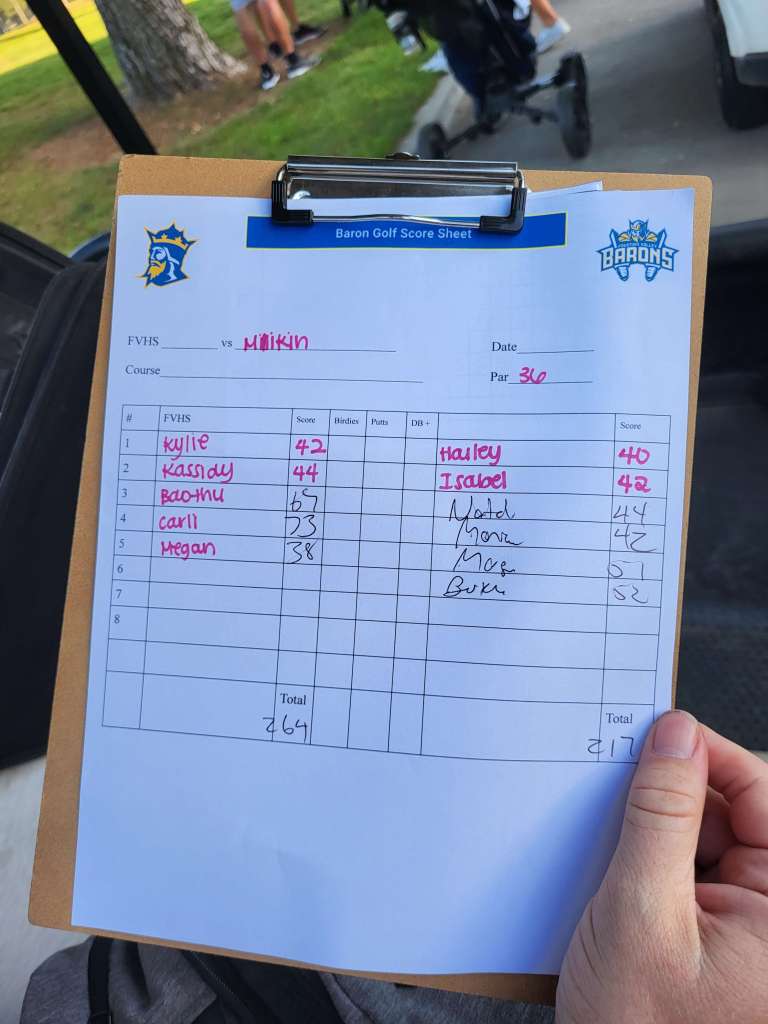 Baron Golf Score Sheet
FOUNTAIN VALLEY
BARONS
FVHS ________ vs Milikin
Date
Course
Par 36
# FVHS Score Birdies Putts DB + Score
1 Kylie 42 Hailey 40
2 Kassidy 44 Isabel 42
3 Bao-thu 67 44
4 Carli 73 42
5 Megan 38
6 52
7
8
Total Total
264 217